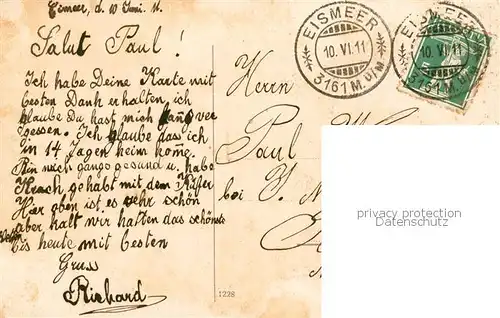 Eismeer, d. 10 Juni. 11.
Salut Paul!
Ich habe Deine Karte mit
besten Dank erhalten, ich
glaube Du hast mich ganz ver
gessen. Ich glaube das ich
in 14 Tagen heim kome.
Bin noch ganz gesund u. habe
Krach gehabt mit dem
Hier oben ist es sehr schön
aber halt wir hatten das schönste
bis heute mit besten
Gruss
Richard
EISMEER
10.VI.11
3161 M.ü/M
EISMEER
10.VI.11
3161 M.ü/M
Herrn
Paul
bei J.
1228
privacy protection
Datenschutz